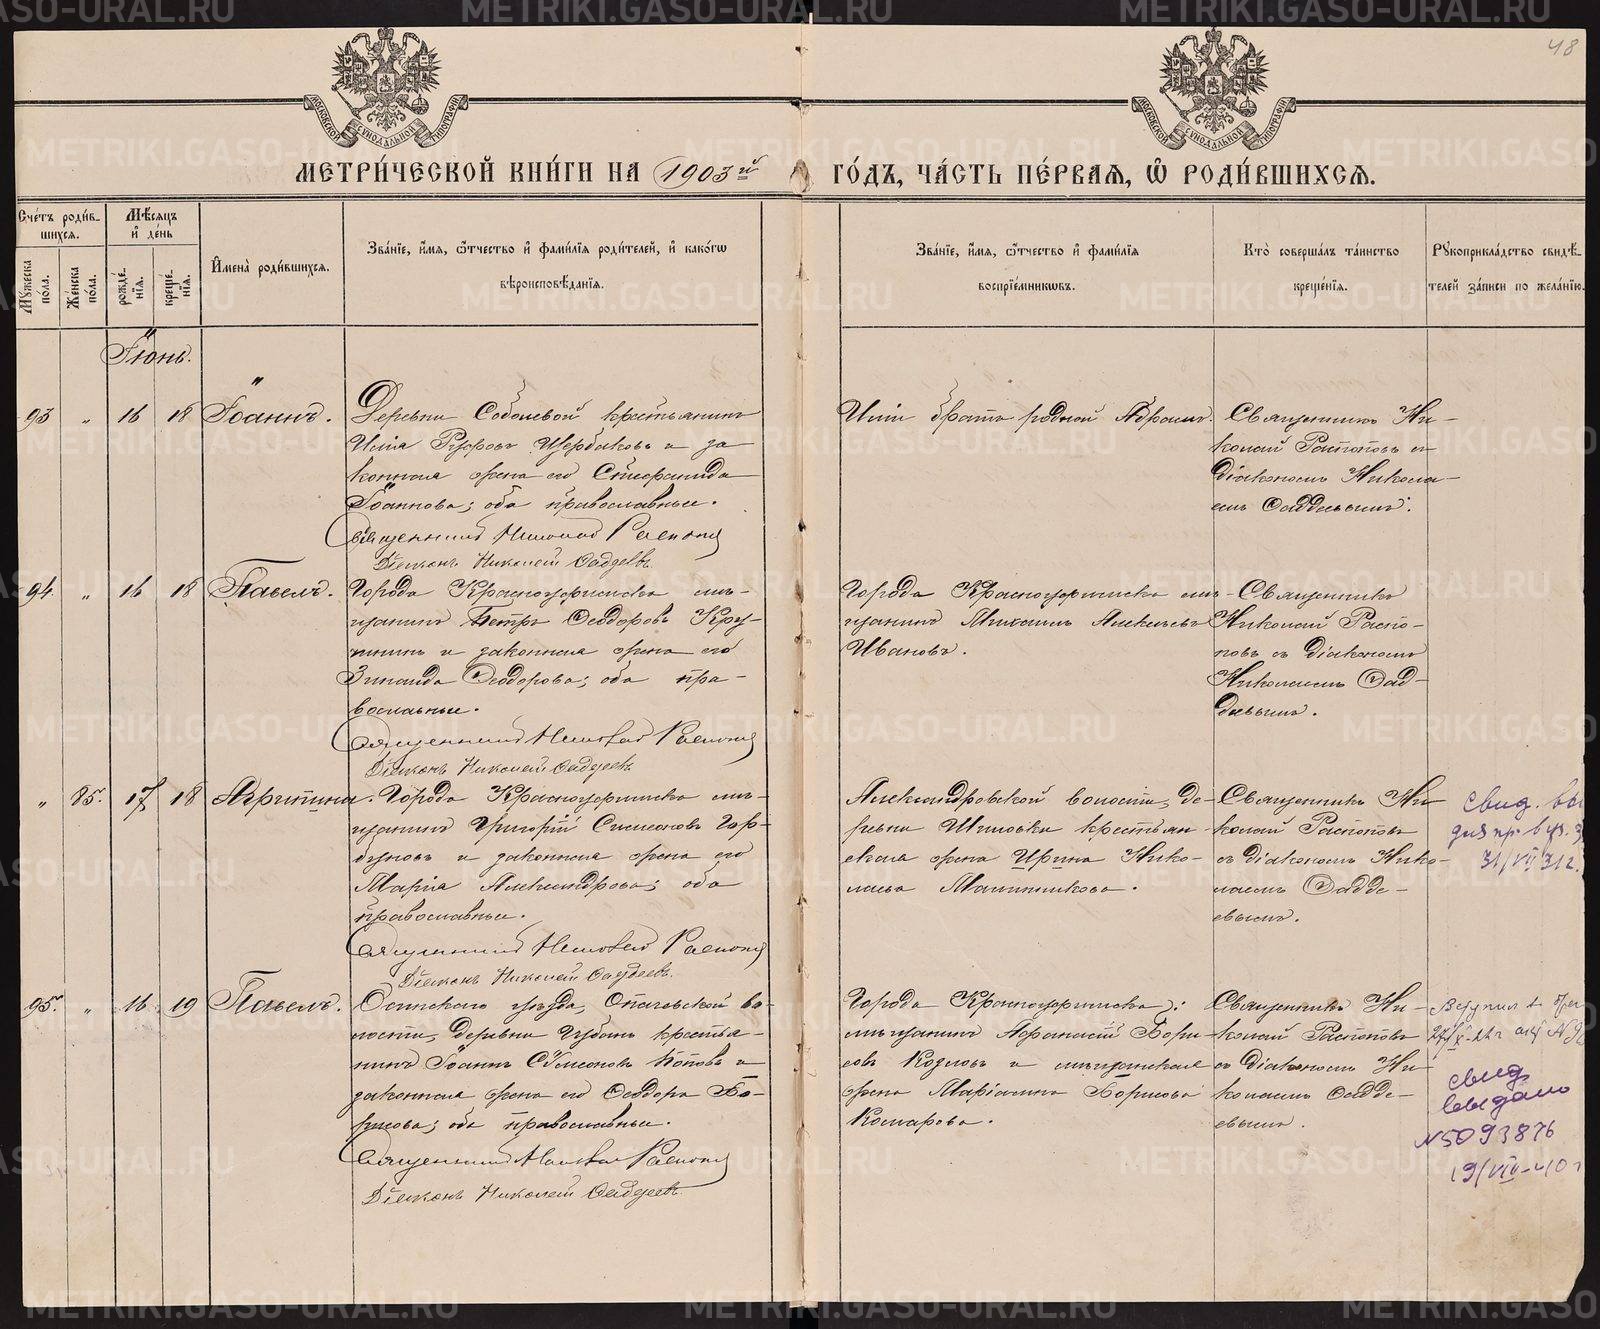 METRIKI.GASO-URAL.RU
48
МОСКОВСКОЙ СѴНОДАЛЬНОЙ ТИПОГРАФІИ
МОСКОВСКОЙ СѴНОДАЛЬНОЙ ТИПОГРАФІИ
МЕТРИ́ЧЕСКОЙ КНИ́ГИ НА 1903й ГО́ДЪ, ЧА́СТЬ ПЕ́РВАЯ, Ѡ҆ РОДИ́ВШИХСЯ.
Сче́тъ роди́в-
шихся.
Мѣ́сяцъ
и҆ де́нь
Мꙋ́жеска по́ла.
Же́нска по́ла.
рожде́-
нїя.
креще́-
нїя.
И҆мена̀ роди́вшихся.
Зва́нїе, и҆́мя, ѻ҆́тчество и҆ фами́лїя роди́телей, и҆ како́гѡ
вѣроисповѣ́данїя.
Зва́нїе, и҆́мя, ѻ҆́тчество и҆ фами́лїя
воспрїе́мникѡвъ.
Кто̀ соверша́лъ та́инство
креще́нїя.
Рꙋкоприкла́дство свидѣ́-
телей за́писи по жела́нїю.
Іюнь.
93 „ 16 18 Іоаннъ.
Деревни Соболевой крестьянинъ
Илія Щербаковъ и за
конная жена его
Іоаннова; оба православные.
Священникъ Николай
Діаконъ Николай Фаддеевъ
Иліи братъ родной Абрамъ.
Священникъ Ни-
колай Распоповъ съ
діакономъ Никола-
емъ Фаддеевымъ.
94. „ 16 18 Павелъ.
Города Красноуфимска мѣ-
щанинъ Петръ Ѳеодоровъ
и законная жена его
Зинаида Ѳеодорова; оба пра-
вославные.
Священникъ Николай
Діаконъ Николай Фаддеевъ
Города Красноуфимска мѣ-
щанинъ Михаилъ Алексѣевъ
Ивановъ.
Священникъ
Николай Распо-
повъ съ діакономъ
Николаемъ Фад-
деевымъ.
„ 85. 17 18 Агриппина.
Города Красноуфимска мѣ-
щанинъ Григорій Симеоновъ Гор-
буновъ и законная жена его
Марія Александрова; оба
православные.
Священникъ Николай
Діаконъ Николай Фаддеевъ.
Александровской волости, де-
ревни крестьян
ская жена Ирина Нико-
лаева
Священникъ Ни
колай Распоповъ
съ діакономъ Нико-
лаемъ Фадде-
евымъ.
свид.
31/VII 31г.
95. „ 16 19 Павелъ.
Осинскаго уѣзда, во-
лости, деревни крестья-
нинъ Іоаннъ Сѵмеоновъ Поповъ и
законная жена его Ѳеодора Бо-
рисова; оба православные.
Священникъ Николай
Діаконъ Николай Фаддеевъ
Города Красноуфимска:
мѣщанинъ Аѳанасій Бори
совъ Козловъ и мѣщанская
жена Маріамна Борисова
Комарова.
Священникъ Ни-
колай Распоповъ
съ діакономъ Ни
колаемъ Фадде-
евымъ.
свид.
выдано
№5093876
19/VIII-40г